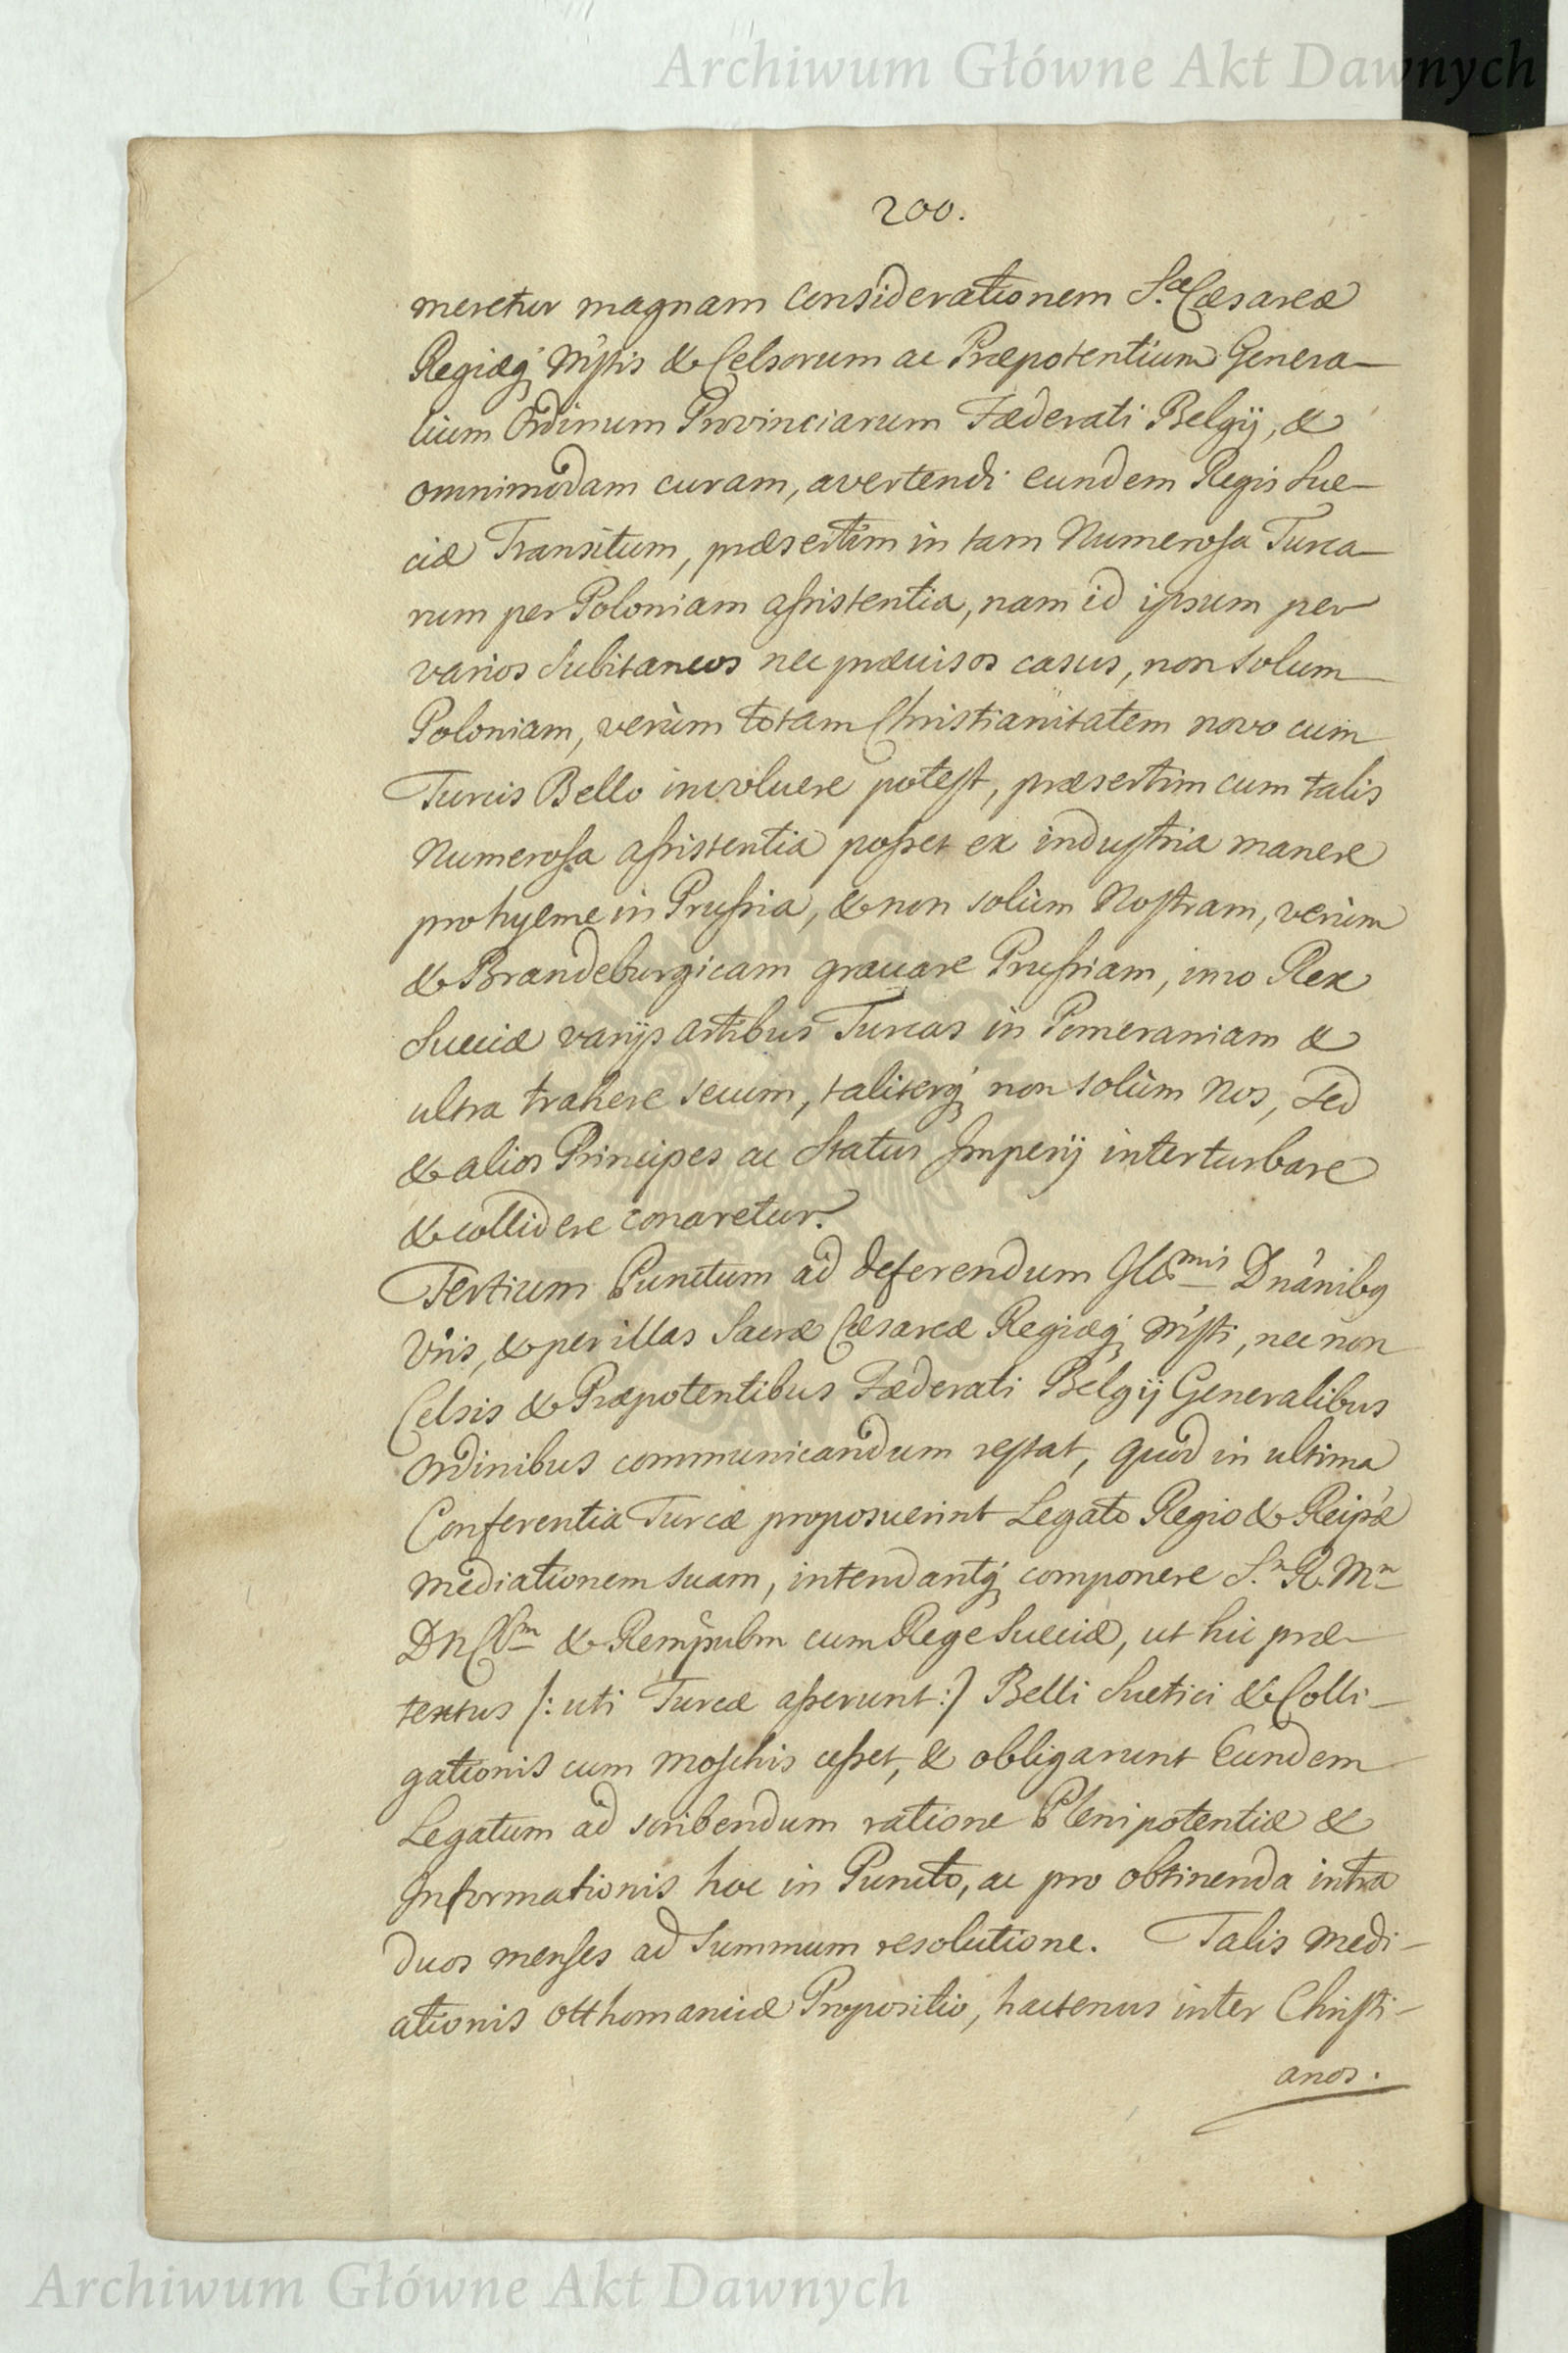 Archiwum Główne Akt Dawnych
200.
meretur magnam considerationem S.æ Cæsareæ
Regiæq́ Mṕtis & Celsorum ac Præpotentium Genera-
lium Ordinum Provinciarum Fæderati Belgij, &
omnimodam curam, avertendi eundem Regis Sue-
ciæ Transitum, præsertim in tam Numerosa Turca-
rum per Poloniam assistentia, nam id ipsum per
varios subitaneos nec præuisos casus, non solum
Poloniam, verùm totam Christianitatem novo cum
Turcis Bello involuere potest, præsertim cum talis
Numerosa assistentia posset ex industria manere
pro hyeme in Prussia, & non solùm Nostram, verùm
& Brandeburgicam grauare Prussiam, imo Rex
Sueciæ varijs artibus Turcas in Pomeraniam &
ultra trahere secum, taliterq́ non solùm Nos, sed
& alios Principes ac Status Imperij interturbare
& collidere conaretur.
Tertium Punctum ad deferendum Illmis Dnánibq
Vris, & per illas Sacræ Cæsareæ Regiæq́ Mṕti, nec non
Celsis & Præpotentibus Fæderati Belgij Generalibus
Ordinibus communicandum restat, quod in ultima
Conferentia Turcæ proposuerint Legato Regio & Reip'æ
mediationem suam, intendantq́ componere S.m R. Mm
DnCVm & Remp̂ublm cum Rege Sueciæ, ut hic præ-
textus /: uti Turcæ asserunt :/ Belli Suetici & Colli-
gationis cum Moschis cesset, & obligarunt Eundem
Legatum ad scribendum ratione Plenipotentiæ &
Informationis hoc in Puncto, ac pro obtinenda intra
duos menses ad summum resolutione. Talis Medi-
ationis Otthomanicæ Propositio, hactenus inter Christi-
anos.
Archiwum Główne Akt Dawnych